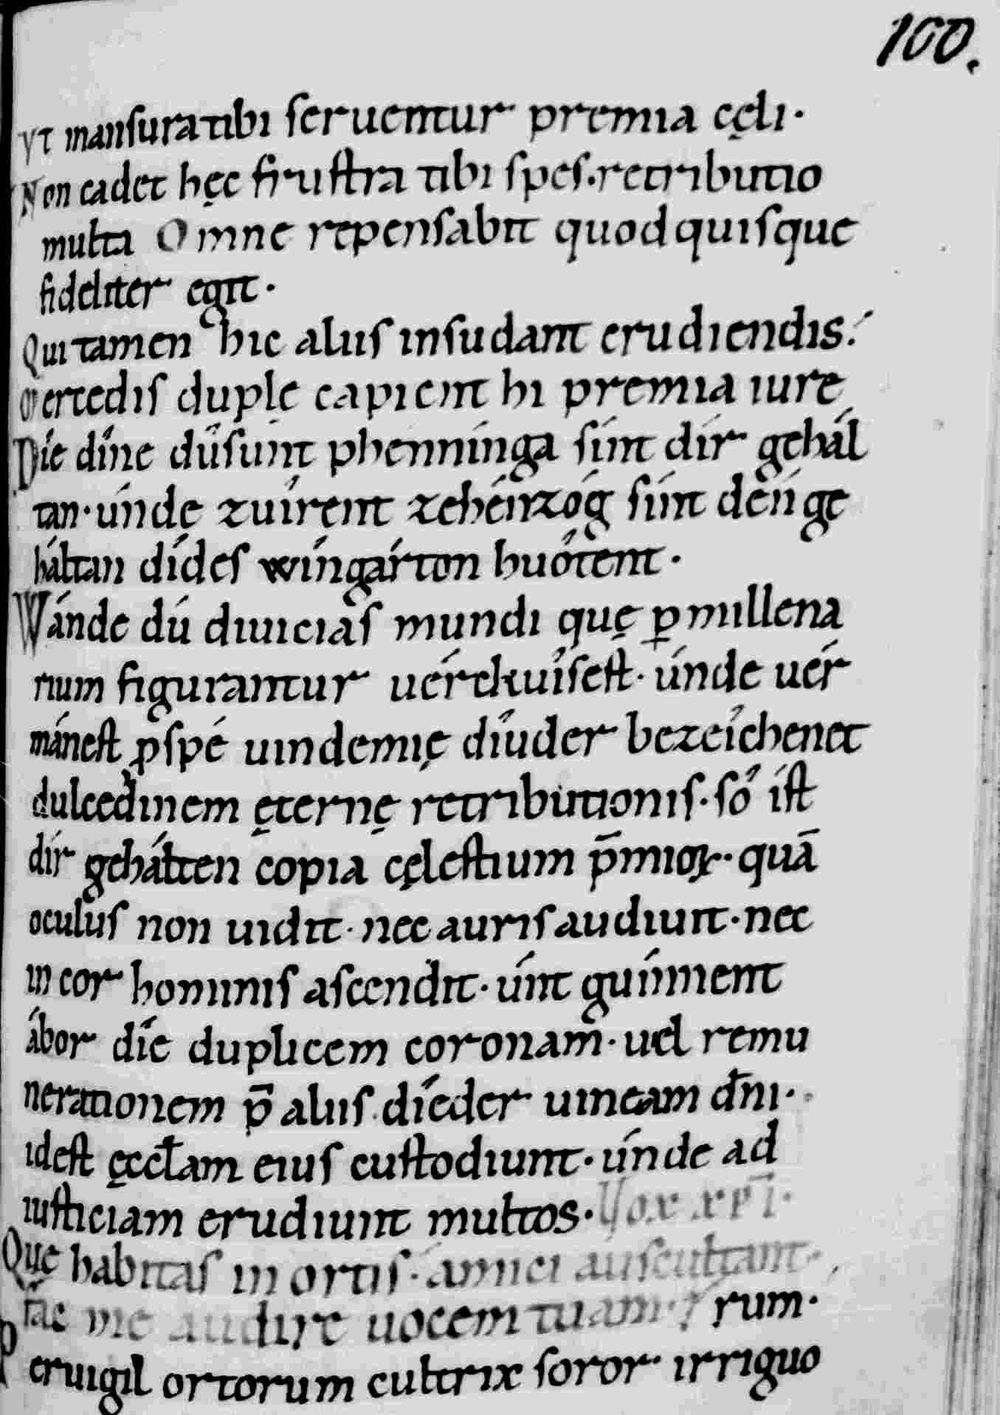 100.
VT mansura tibi seruentur premia cęli·
Non cadet hęc frustra tibi spes. retributio
multa Omne repensabit quod quisque
fideliter egit·
Qui tamen hic aliis insudant erudiendis:
Mercedis duplę capient hi premia iure
Díe díne dûsunt phenninga sínt dír gehál
tan· únde zuírent zehénzóg sínt dén ge
háltan dídes wíngárton huótent·
Wánde dú diuicias mundi quę ꝑ millena
rium figurantur uérchuîsest· únde uér
mánest ꝓ spé uindemię díuder bezeíchenet
dulcedinem ęternę retributionis· só íst
dír gehálten copia cęlestium p̄mioꝝ· quā
oculus non uidit· nec auris audiuit· nec
in cor hominis ascendit· únt guínnent
ábor díe duplicem coronam· uel remu
nerationem p̄ aliis díeder uineam dn̄i·
idest ęccłam eius custodiunt· únde ad
iusticiam erudiunt multos· Vox xp̄i·
Quę habitas in ortis· amici auscultant·
fac me audire uocem tuam· rum·
Peruigil ortorum cultrix soror irriguo